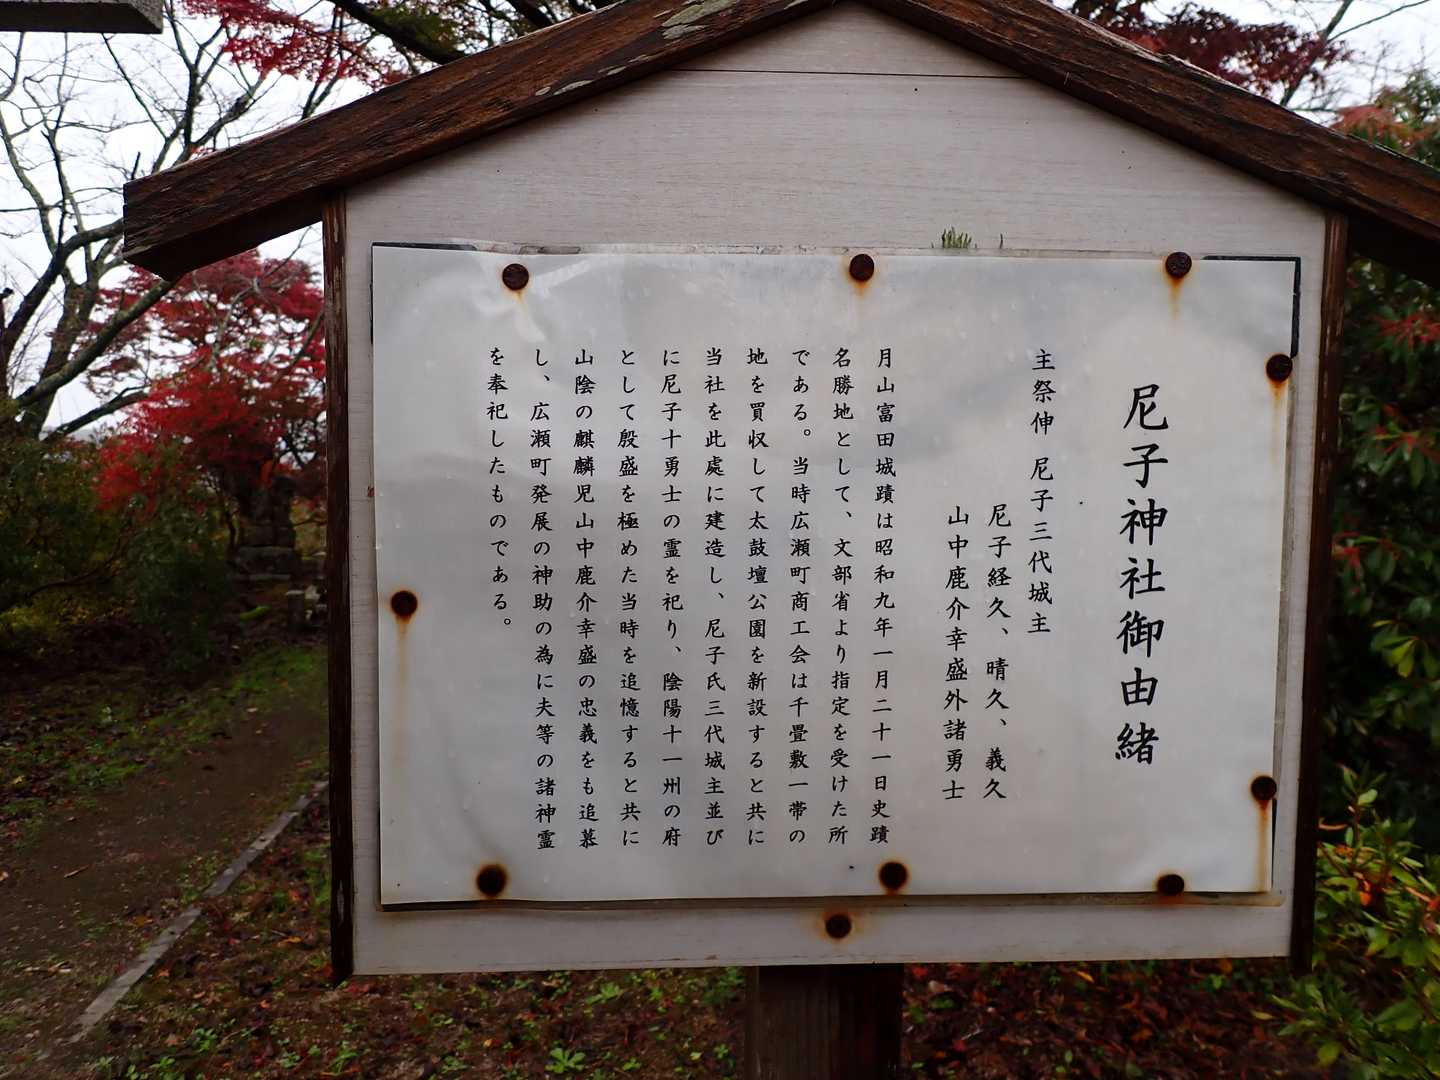 尼子神社御由緒
主祭伸 尼子三代城主
尼子経久、晴久、義久
山中鹿介幸盛外諸勇士
月山富田城蹟は昭和九年一月二十一日史蹟
名勝地として、文部省より指定を受けた所
である。当時広瀬町商工会は千畳敷一帯の
地を買収して太鼓壇公園を新設すると共に
当社を此處に建造し、尼子氏三代城主並び
に尼子十勇士の霊を祀り、陰陽十一州の府
として殷盛を極めた当時を追憶すると共に
山陰の麒麟児山中鹿介幸盛の忠義をも追慕
し、広瀬町発展の神助の為に夫等の諸神霊
を奉祀したものである。